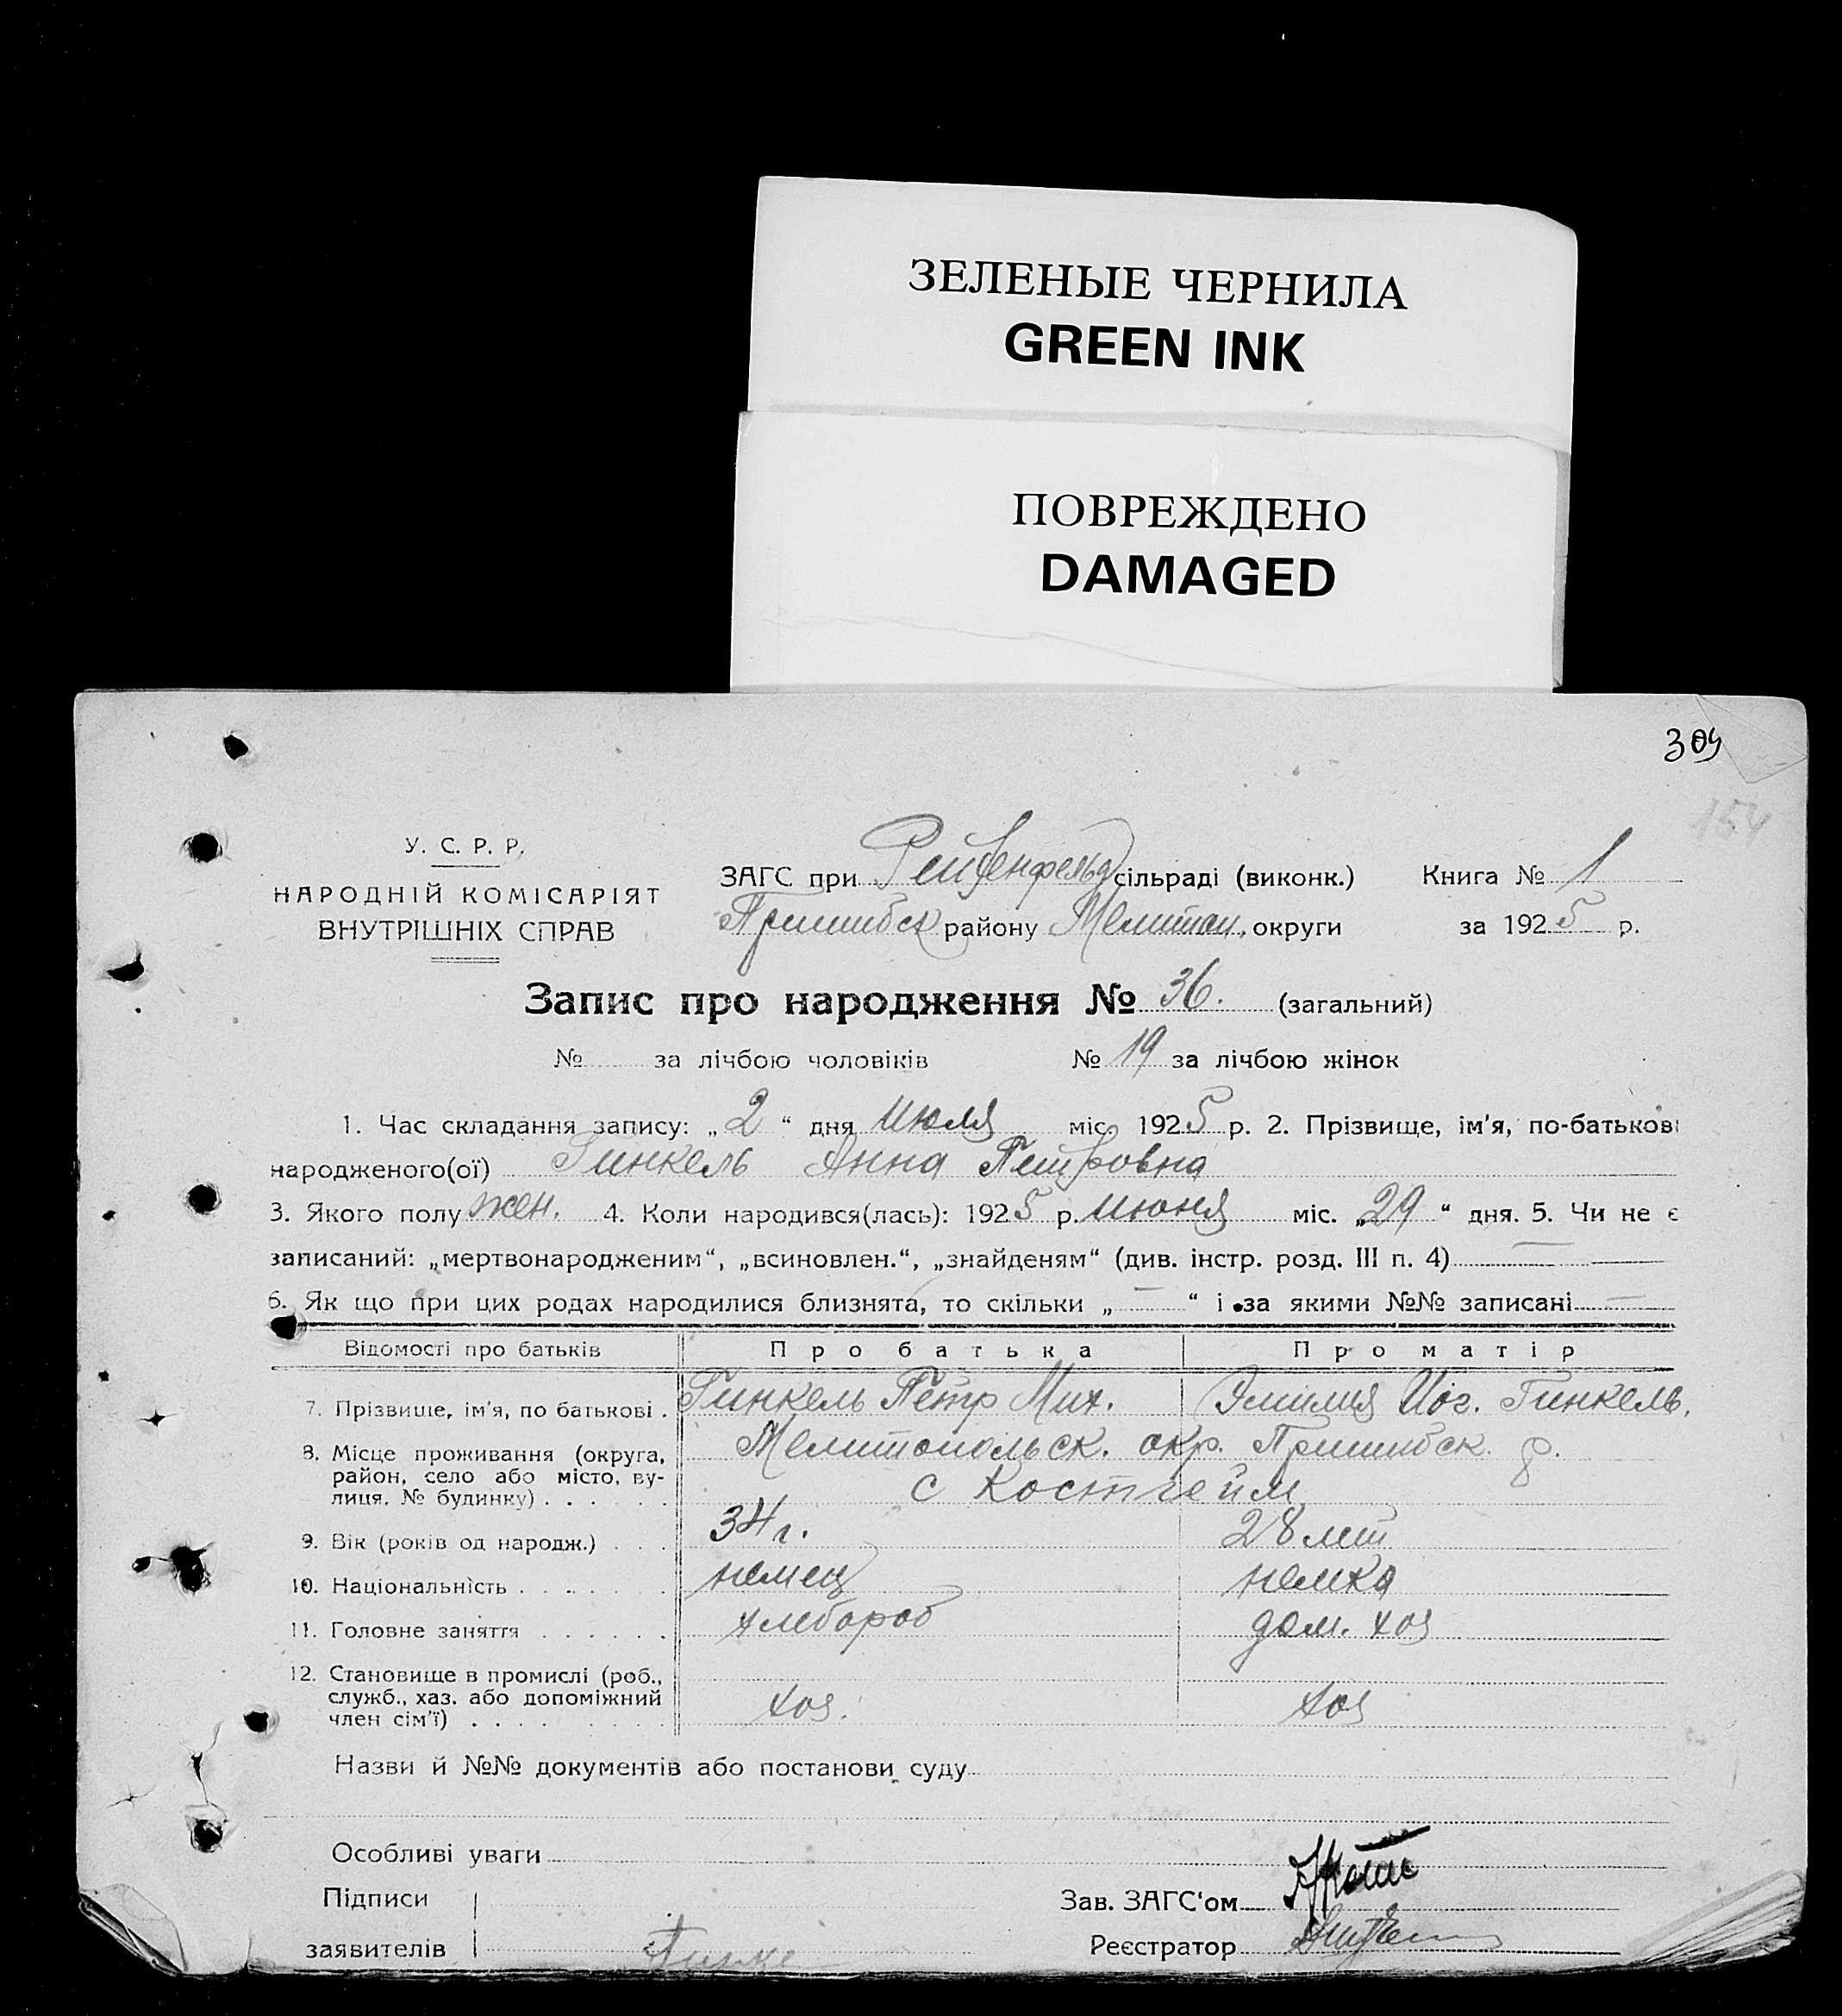 ЗЕЛЕНЫЕ ЧЕРНИЛА
GREEN INK
ПОВРЕЖДЕНО
DAMAGED
309
154
У. С. Р. Р.
НАРОДНІЙ КОМІСАРІЯТ
ВНУТРІШНІХ СПРАВ
ЗАГС при Рейхенфельд сільраді (виконк.) Книга № 1
Пришибск району Мелитоп. округи за 1925 р.
Запис про народження № 36. (загальний)
№ за лічбою чоловіків № 19 за лічбою жінок
1. Час складання запису: „2“ дня Июля міс. 1925 р. 2. Прізвище, ім'я, по-батькові
народженого(ої) Гинкель Анна Петровна
3. Якого полу жен. 4. Коли народився(лась): 1925 р. Июня міс. „29“ дня. 5. Чи не є
записаний: „мертвонародженим“, „всиновлен.“, „знайденям“ (див. інстр. розд. III п. 4) —
6. Як що при цих родах народилися близнята, то скільки „—“ і за якими №№ записані —
Відомості про батьків Про батька Про матір
7. Прізвище, ім'я, по батькові . Гинкель Петр Мих. Эмилия Иог. Гинкель.
8. Місце проживання (округа, район, село або місто, вулиця, № будинку) . . . . . Мелитопольск. окр. Пришибск. р.
с Костгейм
9. Вік (років од народж.) . . . 34 г. 28 лет
10. Національність . . . . . . . немец немка
11. Головне заняття . . . . . . хлебороб дом. хоз
12. Становище в промислі (роб.,
служб., хаз. або допоміжний
член сім'ї) . . . . . . . . . хоз. хоз
Назви й №№ документів або постанови суду
Особливі уваги
Підписи Зав. ЗАГС'ом
заявителів Реєстратор